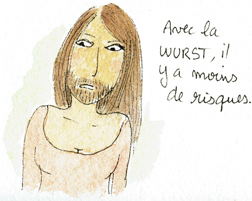 Avec la
WURST, il
y a moins
de risques.